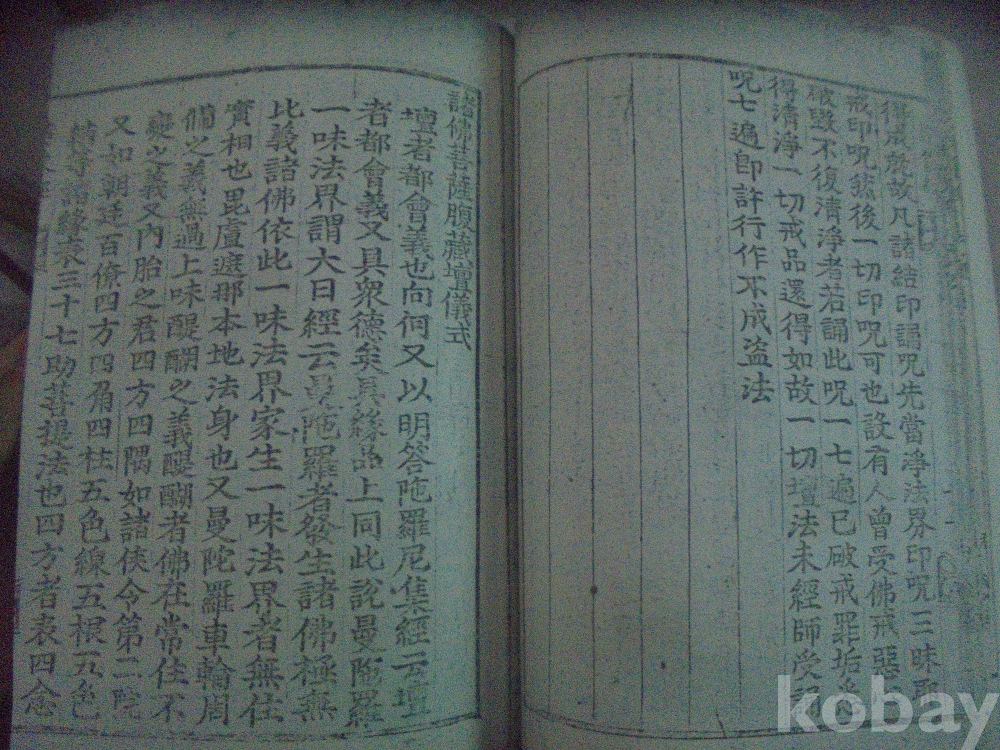 得成就故凡諸結印誦呪先當淨法界印呪三昧耶
戒印呪然後一切印呪可也設有人曾受佛戒惡
破毀不復清淨者若誦此呪一七遍已破戒罪垢
得清淨一切戒品還得如故一切壇法未經師受誦
呪七遍卽許行作不成盜法
諸佛菩薩腹藏壇儀式
壇者都會義也向何又以明答陁羅尼集經云壇
者都會義又具衆德矣具緣品上同此說曼陁羅
一味法界謂大日經云曼陁羅者發生諸佛極無
比義諸佛依此一味法界家生一味法界者無住
實相也毘盧遮那本地法身也又曼陀羅車輪周
備之義無過上味醍醐之義醍醐者佛在常住不
變之義又內胎之君四方四隅如諸俠令第二院
又如朝廷百僚四方四角四柱五色線五根五色
諸緣表三十七助菩提法也四方者表四念
kobay